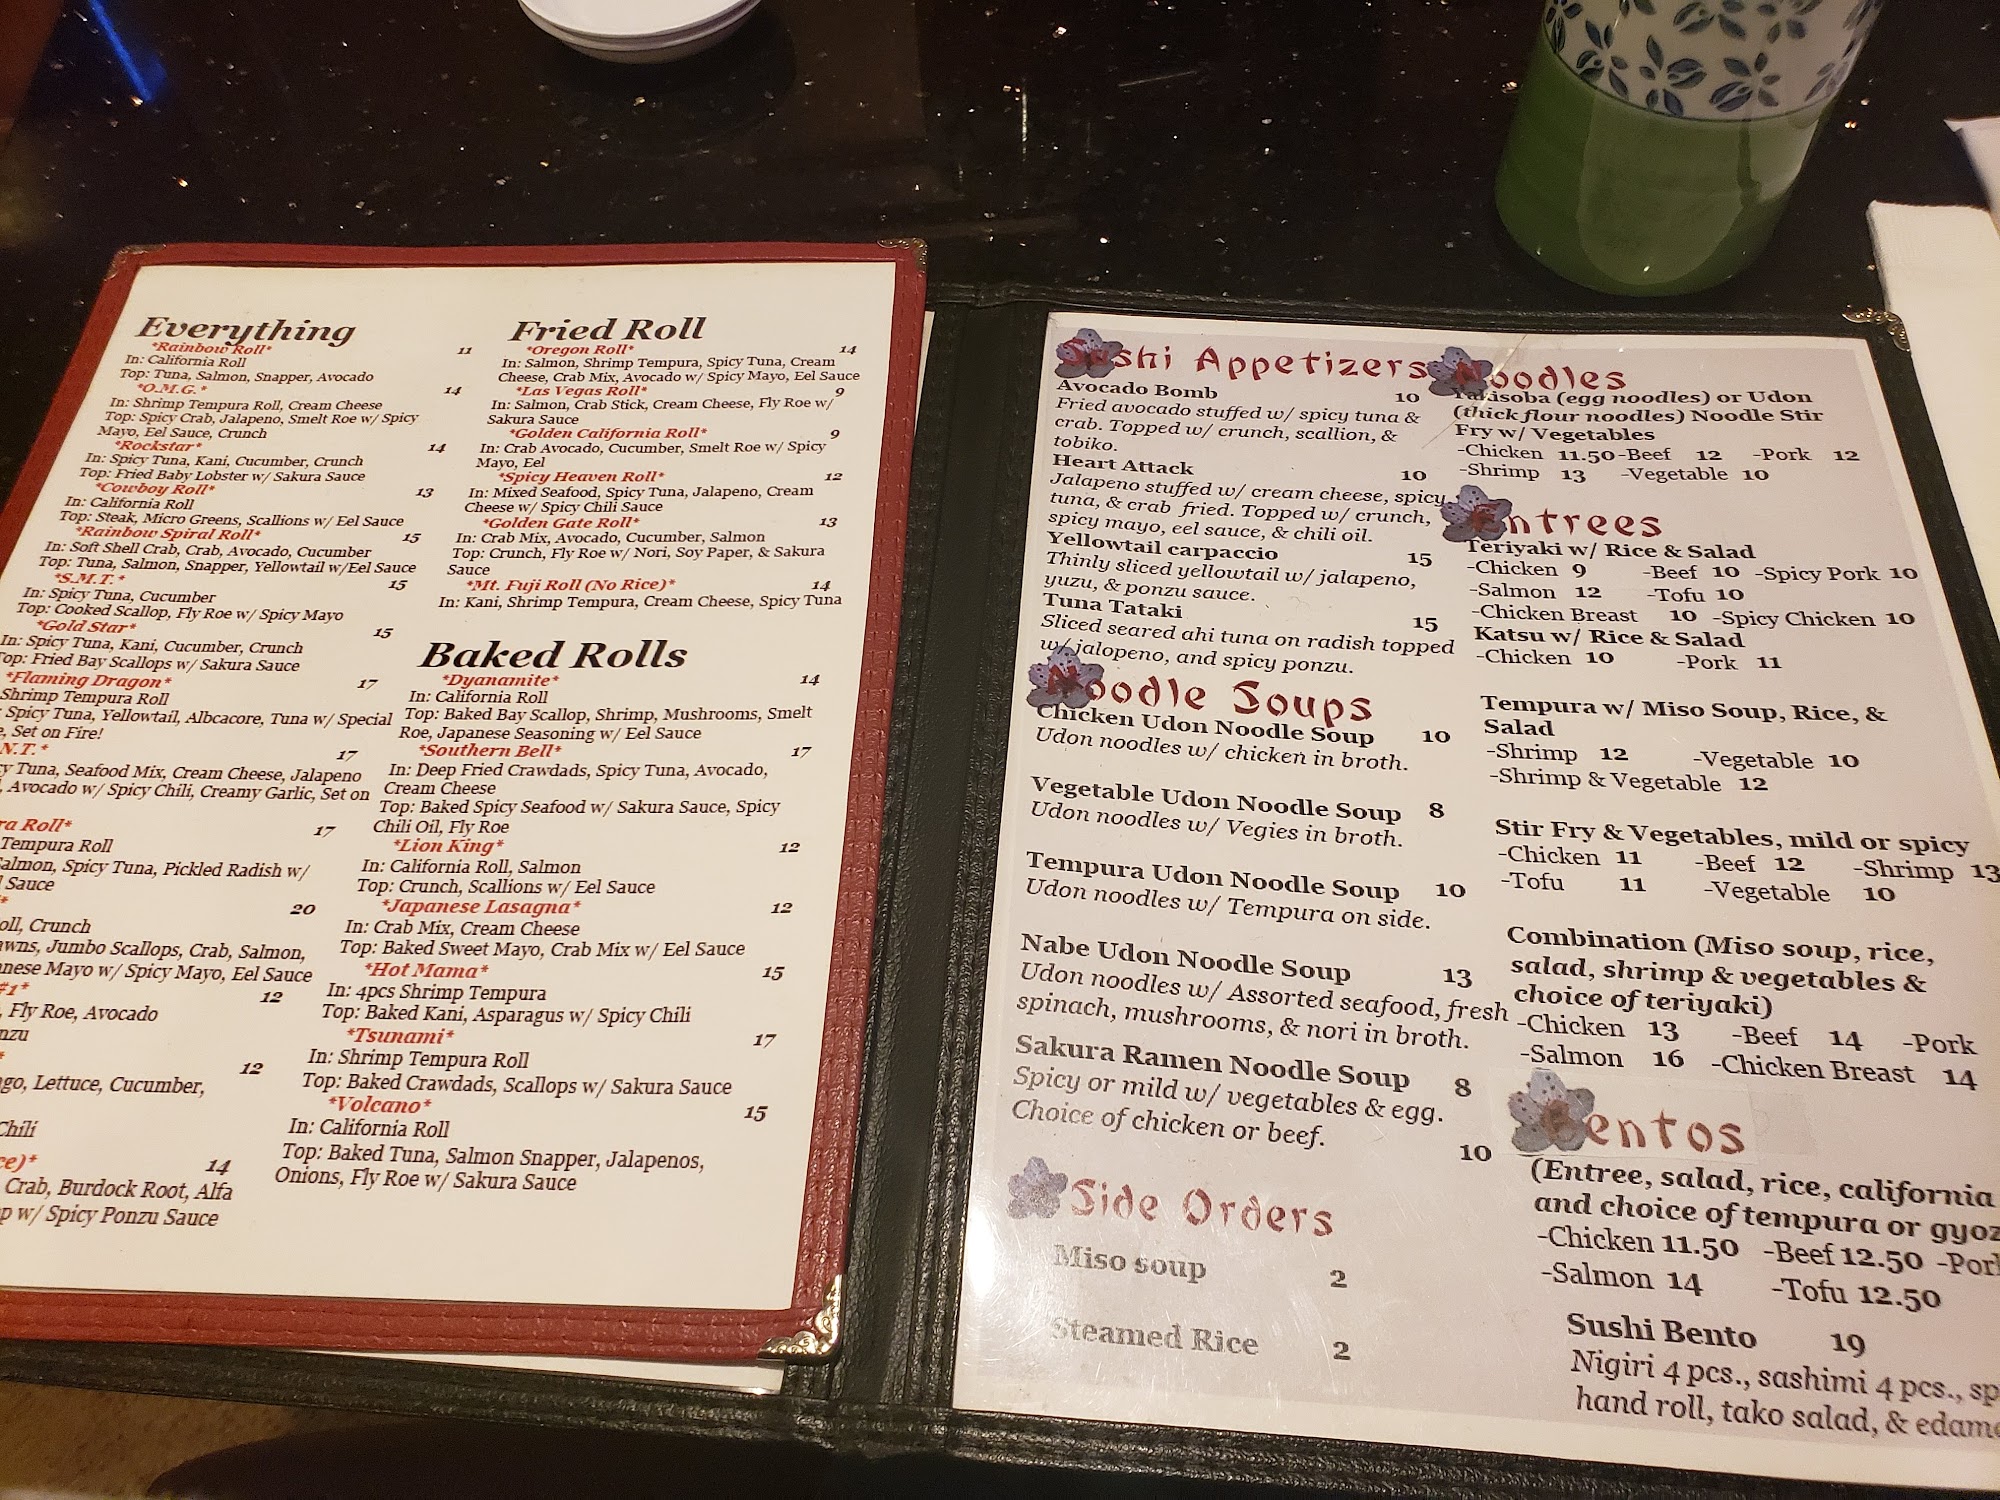 Everything
*Rainbow Roll* 11
In: California Roll
Top: Tuna, Salmon, Snapper, Avocado
*O.M.G.* 14
In: Shrimp Tempura Roll, Cream Cheese
Top: Spicy Crab, Jalapeno, Smelt Roe w/ Spicy
Mayo, Eel Sauce, Crunch
*Rockstar* 14
In: Spicy Tuna, Kani, Cucumber, Crunch
Top: Fried Baby Lobster w/ Sakura Sauce
*Cowboy Roll* 13
In: California Roll
Top: Steak, Micro Greens, Scallions w/ Eel Sauce
*Rainbow Spiral Roll* 15
In: Soft Shell Crab, Crab, Avocado, Cucumber
Top: Tuna, Salmon, Snapper, Yellowtail w/Eel Sauce
*S.M.T.* 15
In: Spicy Tuna, Cucumber
Top: Cooked Scallop, Fly Roe w/ Spicy Mayo
*Gold Star* 15
In: Spicy Tuna, Kani, Cucumber, Crunch
Top: Fried Bay Scallops w/ Sakura Sauce
*Flaming Dragon* 17
Shrimp Tempura Roll
Spicy Tuna, Yellowtail, Albcacore, Tuna w/ Special
Set on Fire!
N.T.* 17
Tuna, Seafood Mix, Cream Cheese, Jalapeno
Avocado w/ Spicy Chili, Creamy Garlic, Set on
Roll* 17
Tempura Roll
Salmon, Spicy Tuna, Pickled Radish w/
Sauce
* 20
Crunch
Jumbo Scallops, Crab, Salmon,
Mayo w/ Spicy Mayo, Eel Sauce
#1* 12
Fly Roe, Avocado
* 12
Lettuce, Cucumber,
Chili
14
Crab, Burdock Root, Alfa
w/ Spicy Ponzu Sauce
Fried Roll
*Oregon Roll* 14
In: Salmon, Shrimp Tempura, Spicy Tuna, Cream
Cheese, Crab Mix, Avocado w/ Spicy Mayo, Eel Sauce
*Las Vegas Roll* 9
In: Salmon, Crab Stick, Cream Cheese, Fly Roe w/
Sakura Sauce
*Golden California Roll* 9
In: Crab Avocado, Cucumber, Smelt Roe w/ Spicy
Mayo, Eel
*Spicy Heaven Roll* 12
In: Mixed Seafood, Spicy Tuna, Jalapeno, Cream
Cheese w/ Spicy Chili Sauce
*Golden Gate Roll* 13
In: Crab Mix, Avocado, Cucumber, Salmon
Top: Crunch, Fly Roe w/ Nori, Soy Paper, & Sakura
Sauce
*Mt. Fuji Roll (No Rice)* 14
In: Kani, Shrimp Tempura, Cream Cheese, Spicy Tuna
Baked Rolls
*Dyanamite* 14
In: California Roll
Top: Baked Bay Scallop, Shrimp, Mushrooms, Smelt
Roe, Japanese Seasoning w/ Eel Sauce
*Southern Bell* 17
In: Deep Fried Crawdads, Spicy Tuna, Avocado,
Cream Cheese
Top: Baked Spicy Seafood w/ Sakura Sauce, Spicy
Chili Oil, Fly Roe
*Lion King* 12
In: California Roll, Salmon
Top: Crunch, Scallions w/ Eel Sauce
*Japanese Lasagna* 12
In: Crab Mix, Cream Cheese
Top: Baked Sweet Mayo, Crab Mix w/ Eel Sauce
*Hot Mama* 15
In: 4pcs Shrimp Tempura
Top: Baked Kani, Asparagus w/ Spicy Chili
*Tsunami* 17
In: Shrimp Tempura Roll
Top: Baked Crawdads, Scallops w/ Sakura Sauce
*Volcano* 15
In: California Roll
Top: Baked Tuna, Salmon Snapper, Jalapenos,
Onions, Fly Roe w/ Sakura Sauce
Sushi Appetizers
Avocado Bomb 10
Fried avocado stuffed w/ spicy tuna &
crab. Topped w/ crunch, scallion, &
tobiko.
Heart Attack 10
Jalapeno stuffed w/ cream cheese, spicy
tuna, & crab fried. Topped w/ crunch,
spicy mayo, eel sauce, & chili oil.
Yellowtail carpaccio 15
Thinly sliced yellowtail w/ jalapeno,
yuzu, & ponzu sauce.
Tuna Tataki 15
Sliced seared ahi tuna on radish topped
w/ jalopeno, and spicy ponzu.
Noodle Soups
Chicken Udon Noodle Soup 10
Udon noodles w/ chicken in broth.
Vegetable Udon Noodle Soup 8
Udon noodles w/ Vegies in broth.
Tempura Udon Noodle Soup 10
Udon noodles w/ Tempura on side.
Nabe Udon Noodle Soup 13
Udon noodles w/ Assorted seafood, fresh
spinach, mushrooms, & nori in broth.
Sakura Ramen Noodle Soup 8
Spicy or mild w/ vegetables & egg.
Choice of chicken or beef.
10
Side Orders
Miso soup 2
Steamed Rice 2
Noodles
Yakisoba (egg noodles) or Udon
(thick flour noodles) Noodle Stir
Fry w/ Vegetables
-Chicken 11.50 -Beef 12 -Pork 12
-Shrimp 13 -Vegetable 10
Entrees
Teriyaki w/ Rice & Salad
-Chicken 9 -Beef 10 -Spicy Pork 10
-Salmon 12 -Tofu 10
-Chicken Breast 10 -Spicy Chicken 10
Katsu w/ Rice & Salad
-Chicken 10 -Pork 11
Tempura w/ Miso Soup, Rice, &
Salad
-Shrimp 12 -Vegetable 10
-Shrimp & Vegetable 12
Stir Fry & Vegetables, mild or spicy
-Chicken 11 -Beef 12 -Shrimp 13
-Tofu 11 -Vegetable 10
Combination (Miso soup, rice,
salad, shrimp & vegetables &
choice of teriyaki)
-Chicken 13 -Beef 14 -Pork
-Salmon 16 -Chicken Breast 14
Bentos
(Entree, salad, rice, california
and choice of tempura or gyoz
-Chicken 11.50 -Beef 12.50 -Pork
-Salmon 14 -Tofu 12.50
Sushi Bento 19
Nigiri 4 pcs., sashimi 4 pcs., sp
hand roll, tako salad, & edam